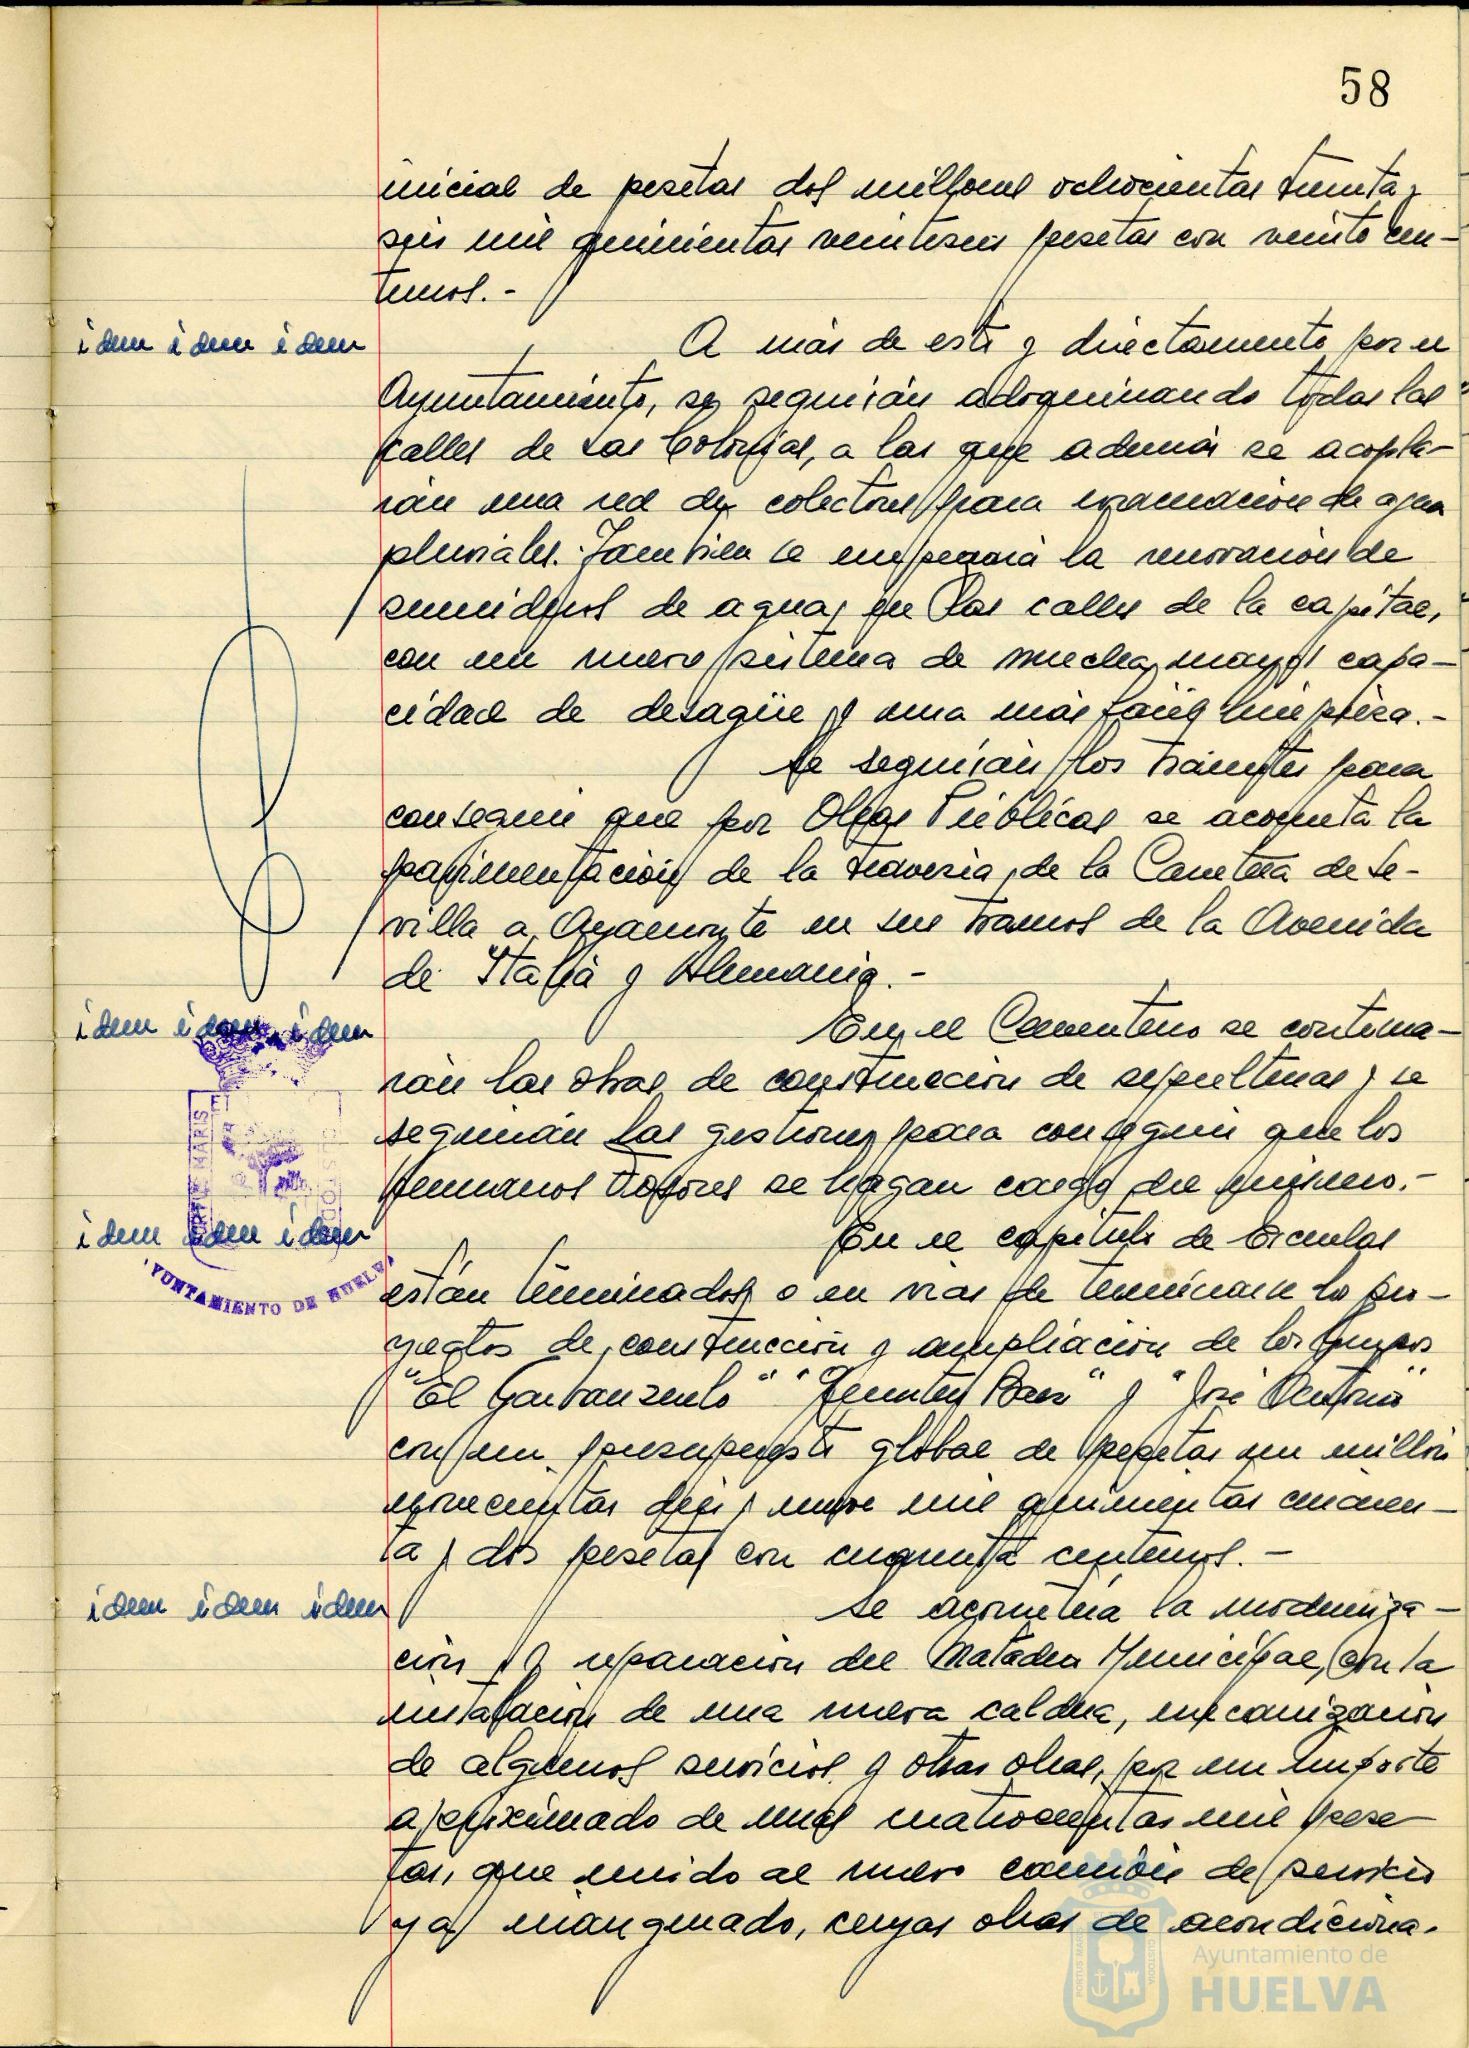 58
inicial de pesetas dos millones ochocientas treinta y
seis mil quinientas veintiseis pesetas con veinte cen-
timos.-
idem idem idem
A más de esto y directamente por el
Ayuntamiento, se seguirán adoquinando todas las
calles de Las Colonias, a las que además se acopla-
rán una red de colectores para evacuación de agua
pluviales. También se empezará la renovación de
sumideros de aguas en las calles de la capital,
con un nuevo sistema de mucha mayor capa-
cidad de desagüe y una más fácil limpieza.-
Se seguirán los trámites para
conseguir que por Obras Públicas se acometa la
pavimentación de la travesía de la Carretera de Se-
villa a Ayamonte en sus tramos de la Avenida
de Italia y Alemania.-
idem idem idem
En el Cementerio se continua-
rán las obras de construcción de sepulturas y se
seguirán las gestiones para conseguir que los
Hermanos Fosores se hagan cargo del mismo.-
PORTUS MARIS ET
CUSTODIA
AYUNTAMIENTO DE HUELVA
idem idem idem
En el capítulo de Escuelas
están terminados o en vías de terminarse lo pro-
yectos de construcción y ampliación de los Grupos
"El Garbanzuelo" "Quintero Baez" y "José Antonio"
con un presupuesto global de pesetas un millón
novecientas diez y nueve mil quinientas cincuen-
ta y dos pesetas con cincuenta centimos.-
idem idem idem
Se acometerá la moderniza-
ción y reparación del Matadero Municipal, con la
instalación de una nueva caldera, mecanización
de algunos servicios y otras obras, por un importe
aproximado de unas cuatrocientas mil pese-
tas, que unido al nuevo camión de servicio
ya inaugurado, cuyas obras de acondiciona-
Ayuntamiento de
HUELVA